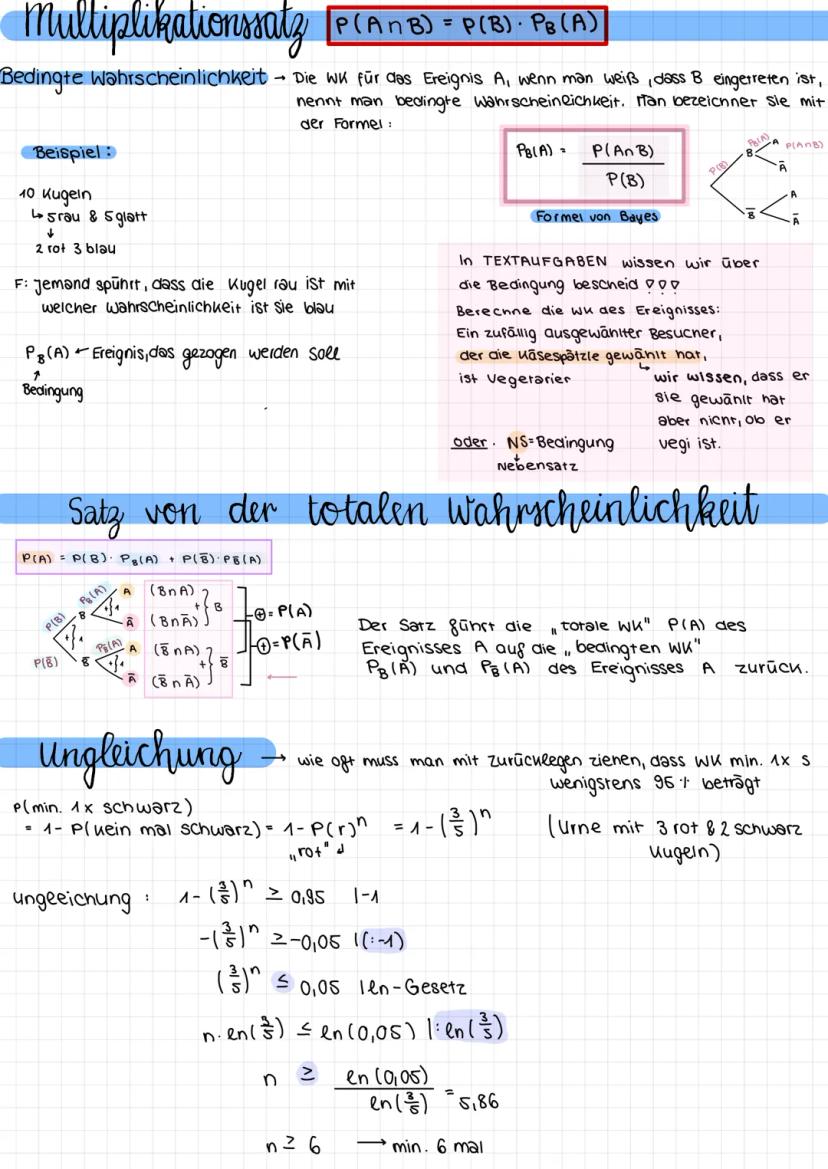 Multiplikationssatz P(A∩B) = P(B) · P_B(A)
Bedingte Wahrscheinlichkeit → Die WK für das Ereignis A, wenn man weiß, dass B eingetreten ist,
nennt man bedingte Wahrscheinlichkeit. Man bezeichnet sie mit
der Formel:
Beispiel:
10 Kugeln
↳ 5 rau & 5 glatt
↓
2 rot 3 blau
F: Jemand spührt, dass die Kugel rau ist mit
welcher Wahrscheinlichkeit ist sie blau
P_B(A) ← Ereignis, das gezogen werden soll
↑
Bedingung
P_B(A) = P(A∩B) / P(B)
Formel von Bayes
P(B) B P_B(A) A P(A∩B)
Ā
B̄ A
Ā
In TEXTAUFGABEN wissen wir über
die Bedingung bescheid !!!
Berechne die WK des Ereignisses:
Ein zufällig ausgewählter Besucher,
der die Käsespätzle gewählt hat,
ist Vegetarier
↳ wir wissen, dass er
sie gewählt hat
aber nicht, ob er
vegi ist.
oder. NS=Bedingung
↓
Nebensatz
Satz von der totalen Wahrscheinlichkeit
P(A) = P(B) · P_B(A) + P(B̄) · P_B̄(A)
P(B) B P_B(A) A (B∩A)
+}1 Ā (B∩Ā) + } B
P(B̄) B̄ P_B̄(A) A (B̄∩A)
+}1 Ā (B̄∩Ā) + } B̄
⊕ = P(A)
⊕ = P(Ā)
←
Der Satz führt die „totale WK" P(A) des
Ereignisses A auf die „bedingten WK"
P_B(A) und P_B̄(A) des Ereignisses A zurück.
Ungleichung → wie oft muss man mit zurücklegen ziehen, dass WK min. 1x s
wenigstens 95 % beträgt
P(min. 1x schwarz)
= 1 - P(kein mal schwarz) = 1 - P(r)ⁿ = 1 - (3/5)ⁿ
„rot"
(Urne mit 3 rot & 2 schwarz
Kugeln)
Ungleichung: 1 - (3/5)ⁿ ≥ 0,95 |-1
-(3/5)ⁿ ≥ -0,05 |(:-1)
(3/5)ⁿ ≤ 0,05 | ln-Gesetz
n · ln(3/5) ≤ ln(0,05) |: ln(3/5)
n ≥ ln(0,05) / ln(3/5) = 5,86
n ≥ 6 → min. 6 mal